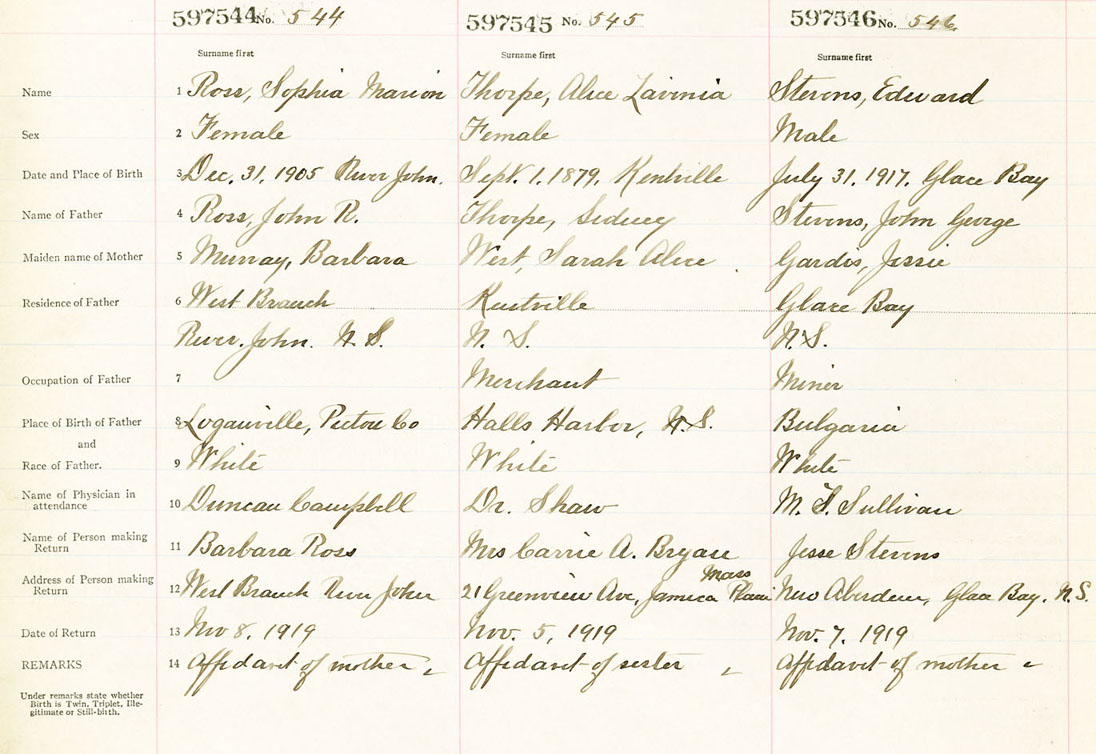 597544 No. 544 597545 No. 545 597546 No. 546
Surname first Surname first Surname first
Name 1 Ross, Sophia Marion Thorpe, Alice Lavinia Stevens, Edward
Sex 2 Female Female Male
Date and Place of Birth 3 Dec. 31, 1905 River John. Sept. 1. 1879. Kentville July 31, 1917. Glace Bay
Name of Father 4 Ross, John R. Thorpe, Sidney Stevens, John George
Maiden name of Mother 5 Murray, Barbara West, Sarah Alice Gardis, Jessie
Residence of Father 6 West Branch Kentville Glace Bay
River. John. N. S. N. S. N.S.
Occupation of Father 7 Merchant Miner
Place of Birth of Father 8 Loganville, Pictou Co Halls Harbor, N.S. Bulgaria
and
Race of Father. 9 White White White
Name of Physician in attendance 10 Duncan Campbell Dr. Shaw M. T. Sullivan
Name of Person making Return 11 Barbara Ross Mrs Carrie A. Bryan Jesse Stevens
Mass
Address of Person making Return 12 West Branch River John 21 Greenview Ave, Jamica Plain New Aberdeen, Glace Bay. N.S.
Date of Return 13 Nov 8, 1919 Nov. 5, 1919 Nov. 7. 1919
REMARKS 14 Affidavit of mother Affidavit of sister Affidavit of mother
Under remarks state whether
Birth is Twin, Triplet, Ille-
gitimate or Still-birth.